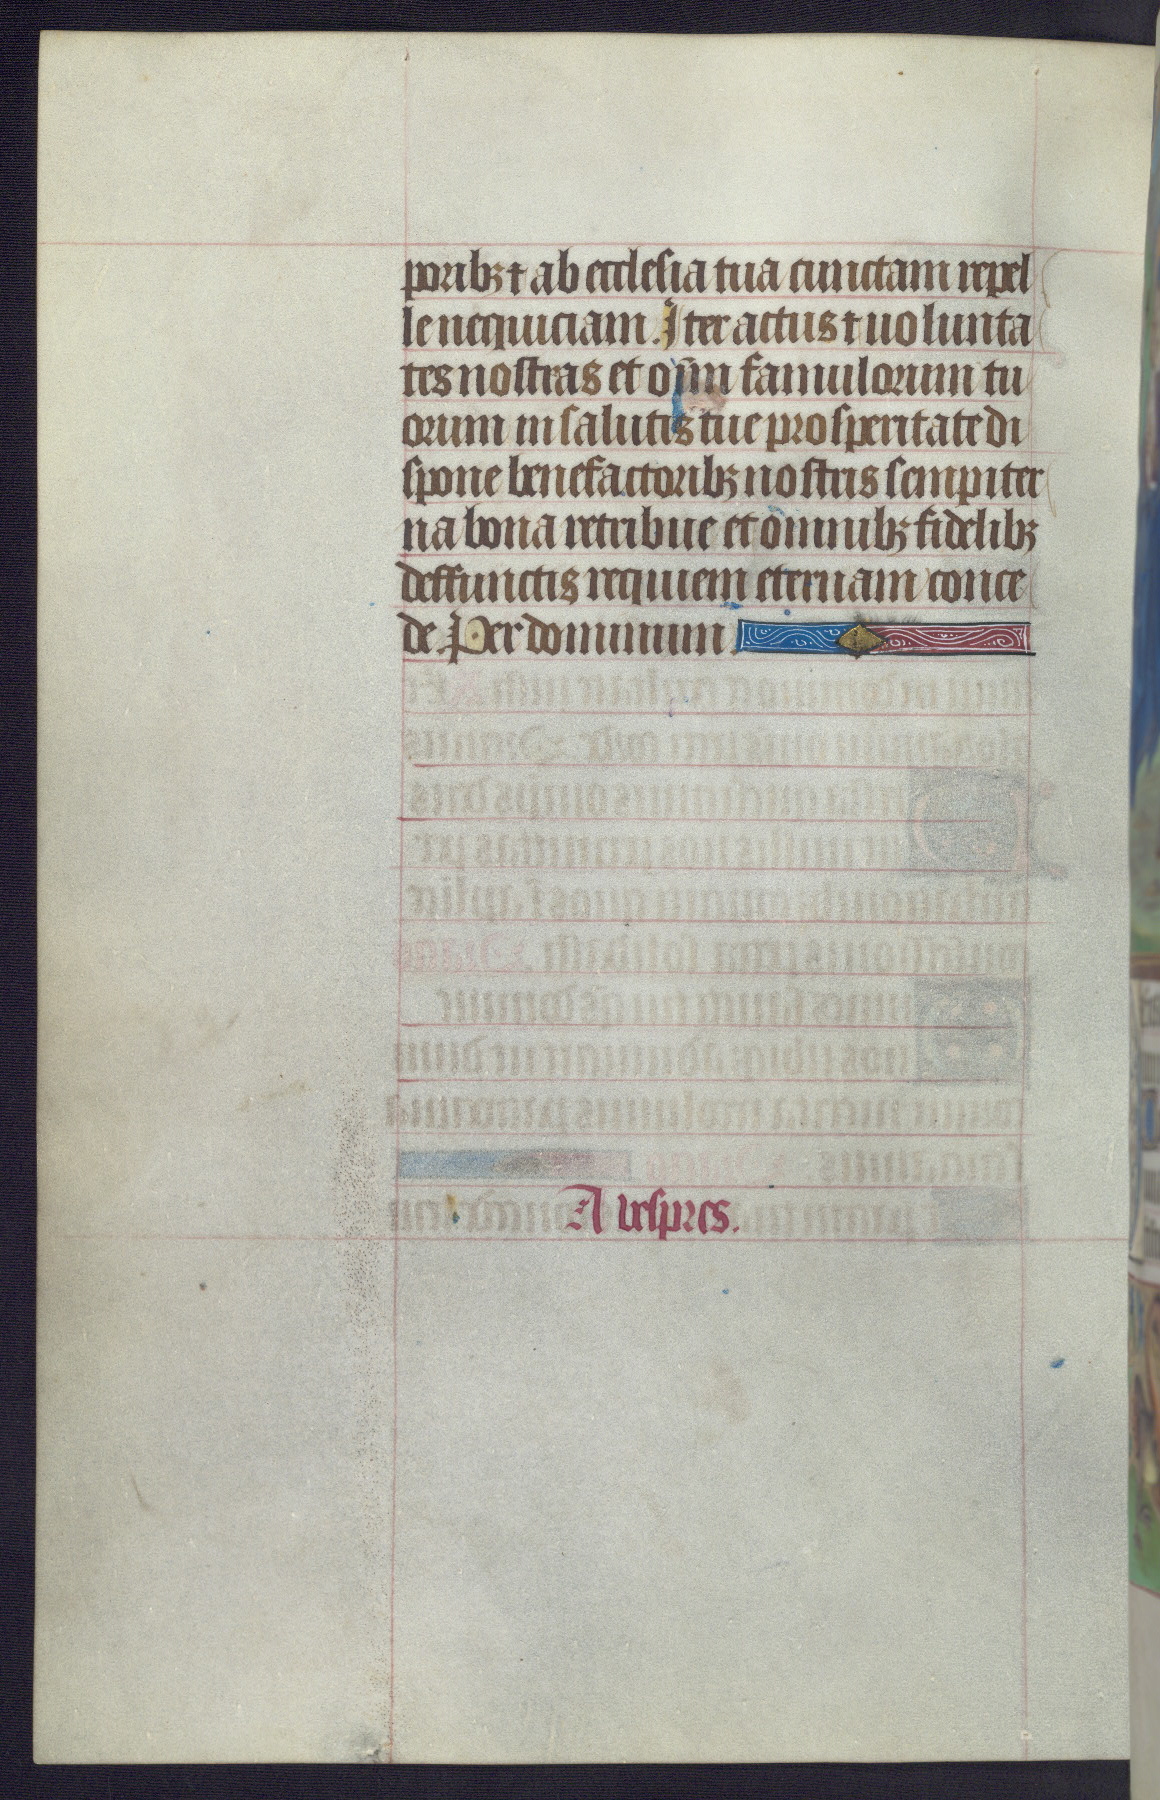 poribꝫ ⁊ ab ecclesia tua cunctam repel
le nequiciam. Iter actus ⁊ uolunta
tes nostras et oīm famulorum tu
orum in salutis tue prosperitate di
spone benefactoribꝫ nostris sempiter
na bona retribue et omnibꝫ fidelibꝫ
deffunctis requiem eternam conce
de. Per dominum.
A vespres.